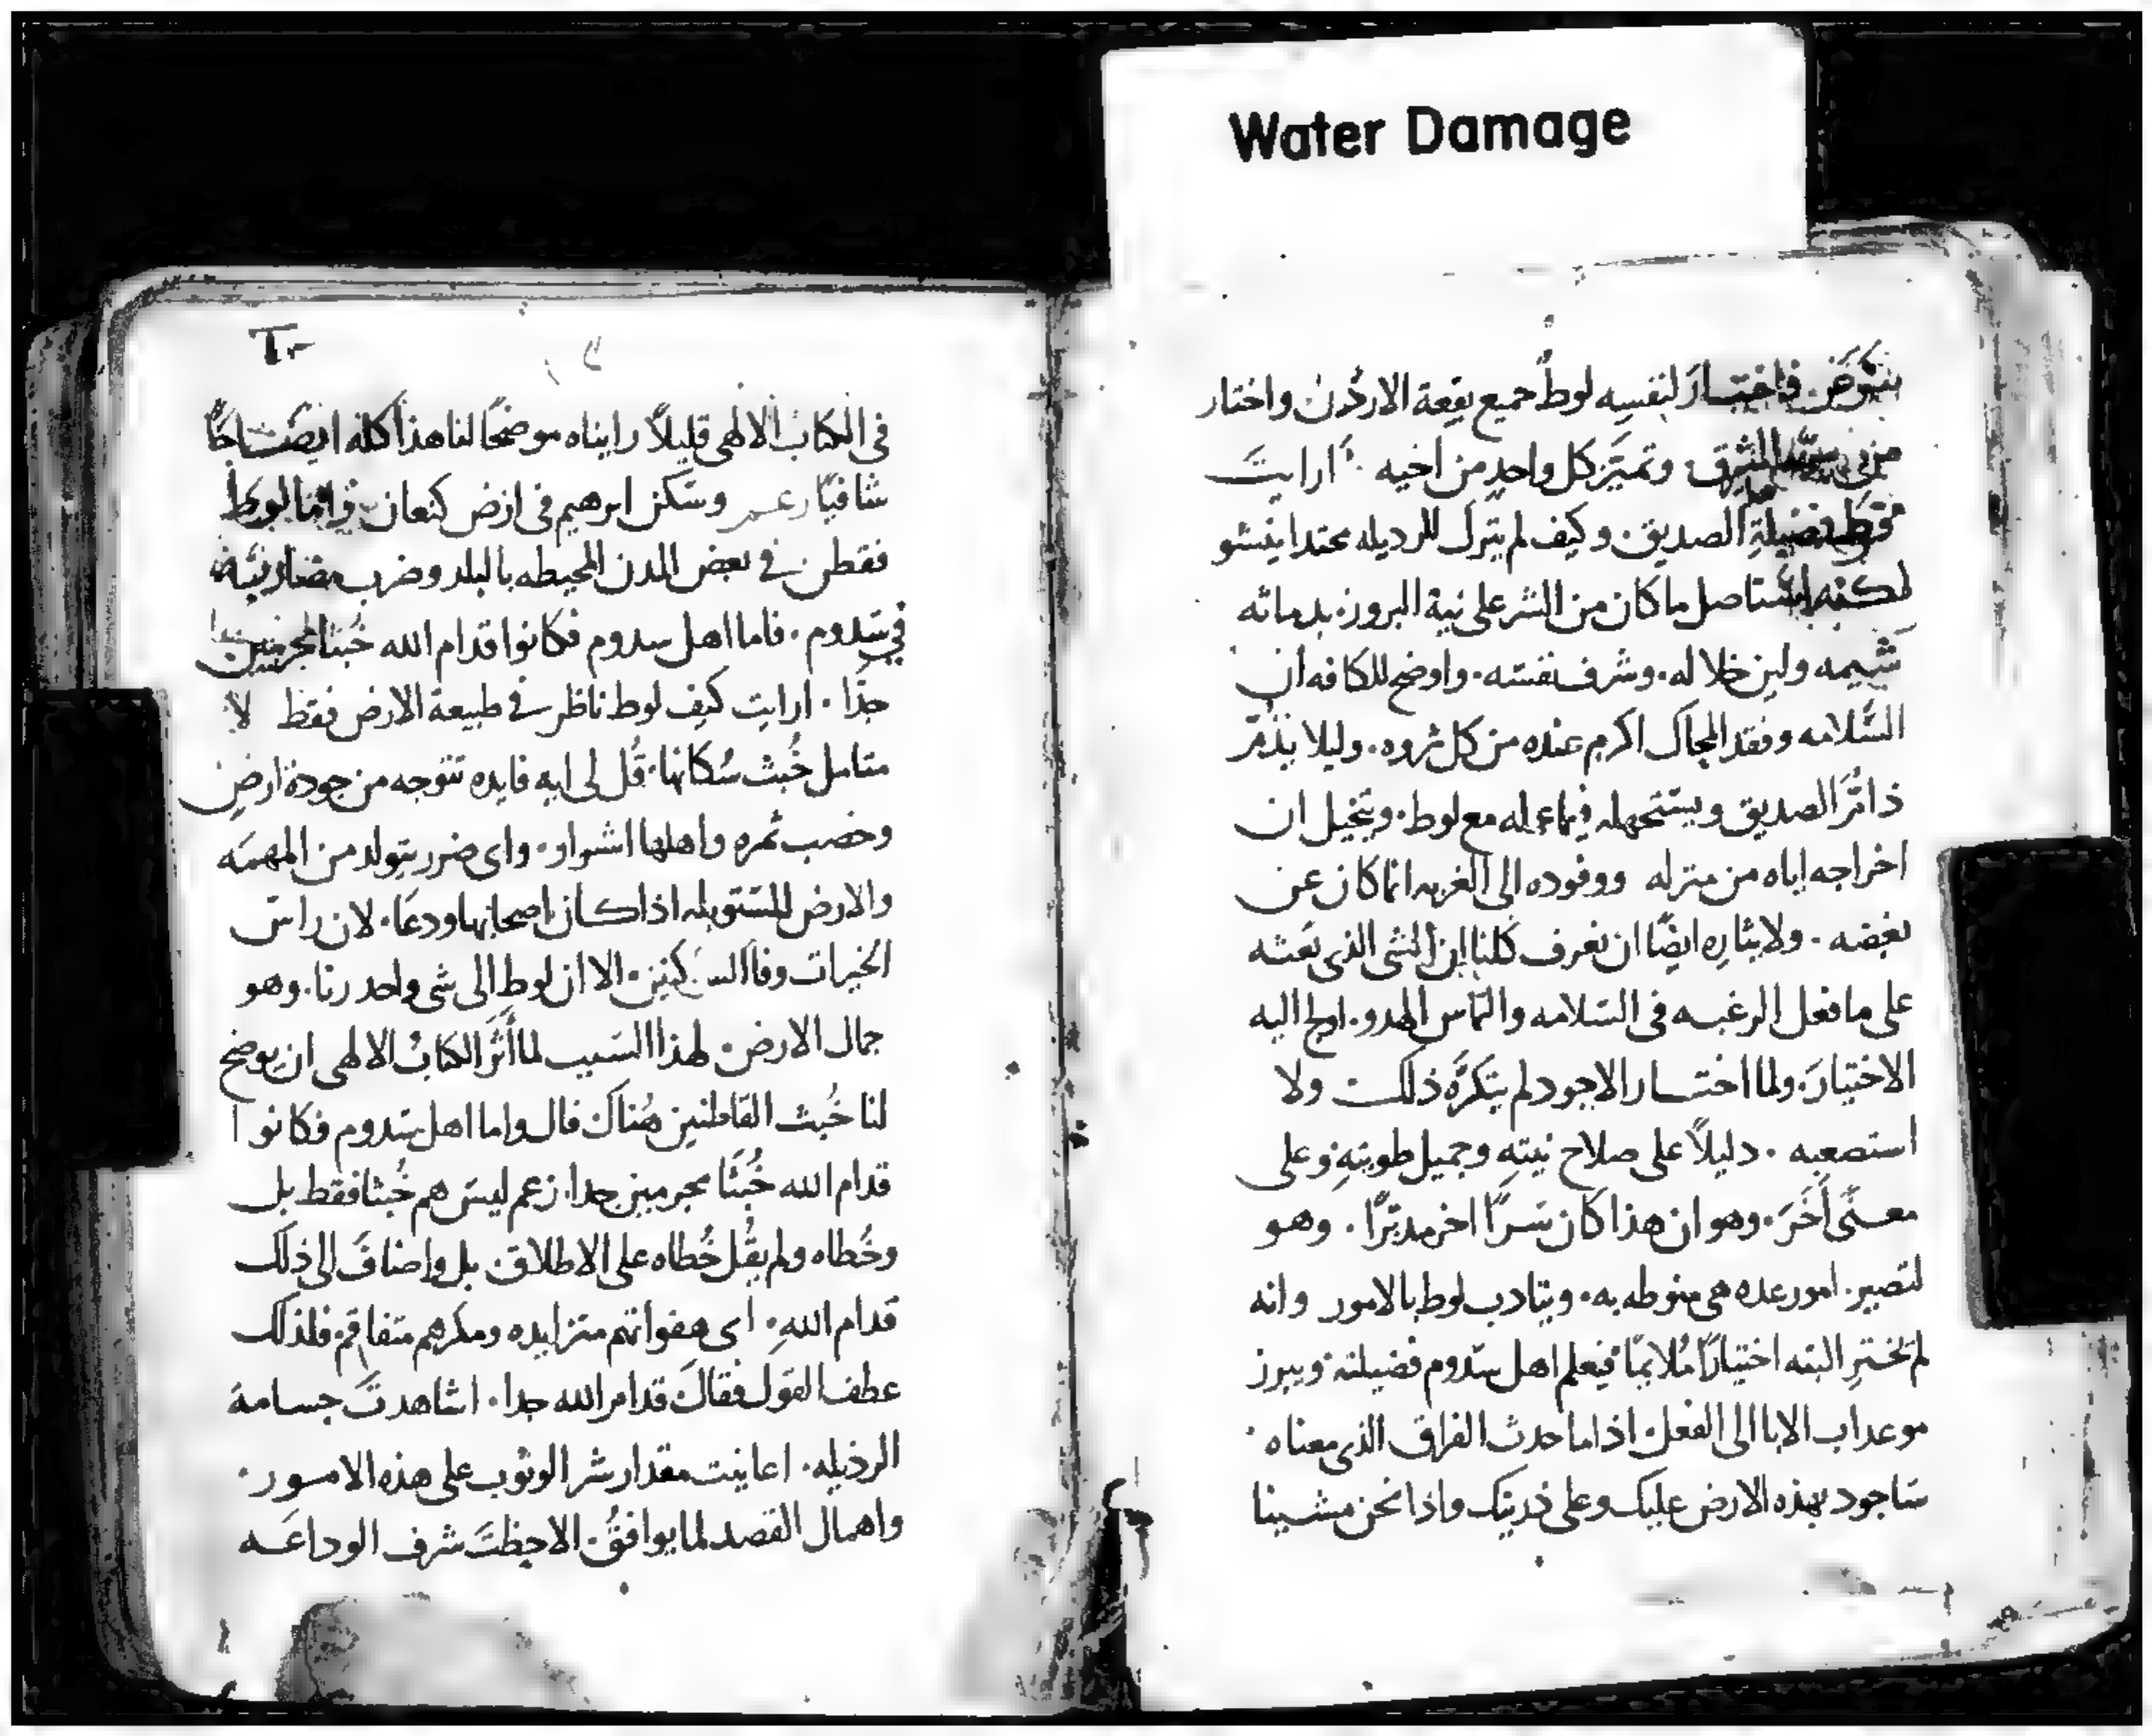 Water Damage
فاختار لنفسه لوط جميع بقعة الاردن واختار
من وتميز كل واحد من اخيه . ارايت
الصديق وكيف لم يترك للرديله محتدا ينشو
ما كان من الشر على نية البروز بدماثه
شيمه ولين خلاله . وشرف نفسه . واوضح للكافه ان
السلامه وفقد المحاك اكرم عنده من كل ثروه . وليلا يذمر
الصديق ويستجهله فيما عمله مع لوط . ويتخيل ان
اخراجه اياه من منزله ووفوده الى الغربه انما كان عن
بغضه . ولايثاره ايضًا ان نعرف كلنا ان الشي الذي بعثه
على ما فعل الرغبه في السلامه والتماس الهدو . اليه
الاختيار . ولما اختار الاجود لم يتكرَّه ذلك ولا
استصعبه . دليلاً على صلاح نيته وجميل طويته وعلى
معنًى آخَرَ . وهو ان هذا كان سرًّا اخر مدبرًا . وهو
لتصير . امور عده هي منوطه به . ويتادب لوط بالامور وانه
لم يختر البته اختيارًا مُلايمًا فيعلم اهل سدوم فضيلته ويبرز
موعد اب الابا الى الفعل . اذا ما حدث الفراق الذي معناه .
ساجود بهذه الارض عليك وعلى ذريتك واذا نحن مشينا
في الكتاب الالهي قليلاً رايناه موضحًا لنا هذا كله ايضاحًا
شافيًا زعم وسكن ابرهيم في ارض كنعان واما لوط
فقطن في بعض المدن المحيطه بالبلد وضرب مضاربه
في سدوم . فاما اهل سدوم فكانوا قدام الله خُبثا مجرمين
جدًا . ارايت كيف لوط ناظر في طبيعة الارض فقط لا
متامل خُبث سُكانها . قُل لي ايه فايده تتوجه من جودة ارض
وخصب ثمره واهلها اشرار . واي ضرر يتولد من المهمه
والارض المستوبله اذا كان اصحابها ودعًا . لان راس
الخيرات وفا الساكنين . الا ان لوط الى شي واحد رنا . وهو
جمال الارض . لهذا السبب لما أَثَر الكتابُ الالهي ان يوضح
لنا خُبث القاطنين هُناك قال واما اهل سدوم فكانوا
قدام الله خُبثًا مجرمين جدا . زعم ليس هم خُبثا فقط بل
وخُطاه ولم يقُل خُطاه على الاطلاق . بل واضافَ الى ذلك
قدام اللهِ . اي هفواتهم متزايده ومكرهم متفاقم . فلذلك
عطف القول فقالَ قدام الله جدا . اشاهدتَ جسامة
الرذيله . اعاينت مقدار شر الوثوب على هذه الامور .
واهمال القصد لما يوافقُ . الاحظتَ شرف الوداعه